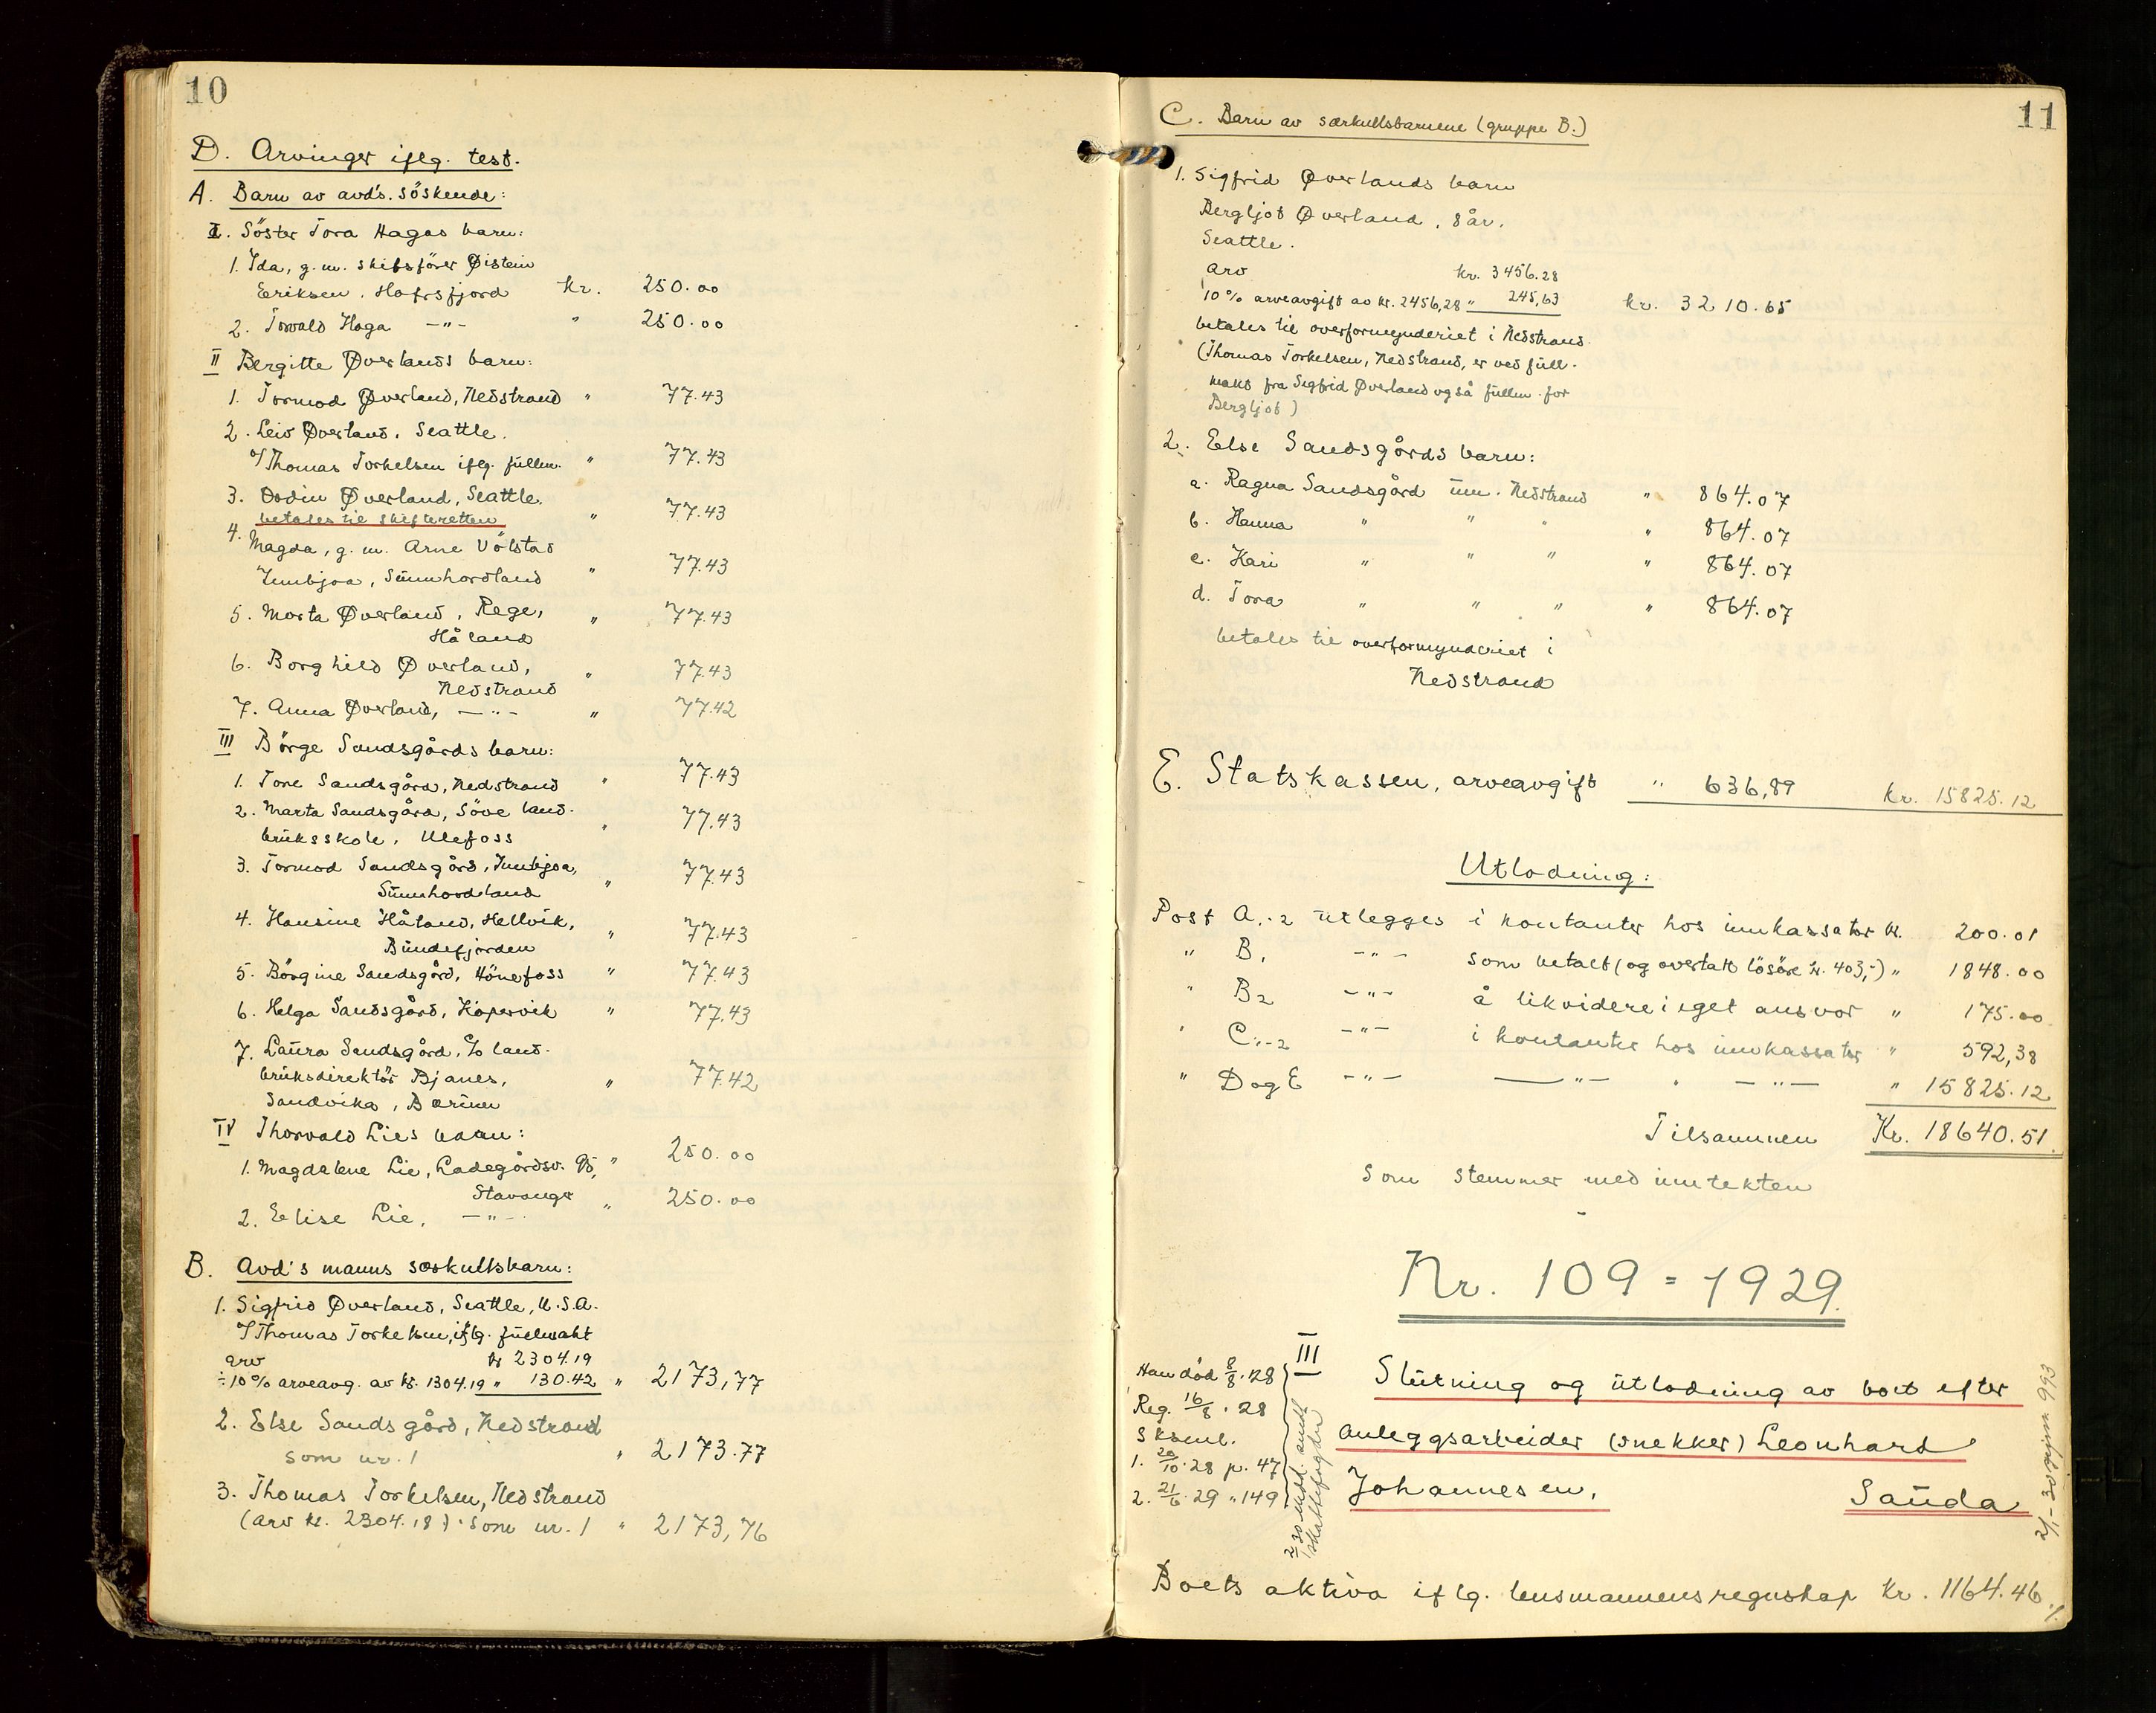 10
D. Arvinger iflg. test.
A. Barn av avd's. söskende:
I. Söster Tora Hagas barn:
1. Ida, g. m. skibsförer Øistein
Eriksen. Hafrsfjord kr. 250.00
2. Torvald Haga —"— " 250.00
II Bergitte Øverlands barn:
1. Tormod Øverland, Nedstrand " 77.43
2. Leiv Øverland. Seattle.
c/ Thomas Torkelsen iflg. fullm. " 77.43
3. Oddin Øverland, Seattle.
betales til skifteretten " 77.43
4. Magda, g. m. Arne Völstad
Innbjoa, Sunnhordland " 77.43
5. Marta Øverland, Rege,
Håland " 77.43
6. Borghild Øverland,
Nedstrand " 77.43
7. Anna Øverland, —"— " 77.42
III Börge Sandsgårds barn:
1. Tore Sandsgård, Nedstrand " 77.43
2. Marta Sandsgård, Söve land-
bruksskole, Ulefoss " 77.43
3. Tormod Sandsgård, Innbjoa,
Sunnhordland " 77.43
4. Hansine Håland, Hellvik,
Bundefjorden " 77.43
5. Börgine Sandsgård, Hönefoss " 77.43
6. Helga Sandsgård, Kopervik " 77.43
7. Laura Sandsgård, c/o land-
bruksdirektör Bjanes,
Sandvika, Bærum " 77.42
IV Thorvald Lies barn:
1. Magdalene Lie, Ladegårdsv. 95, " 250.00
Stavanger
2. Elise Lie, —"— " 250.00
B. Avd's manns særkullsbarn:
1. Sigfrid Øverland, Seattle, U.S.A.
c/ Thomas Torkelsen, iflg. fullmakt
arv kr 2304.19
÷ 10% arveavg. av kr. 1304.19 " 130.42 " 2173,77
2. Else Sandsgård, Nedstrand
som nr. 1 " 2173.77
3. Thomas Torkelsen, Nedstrand
(arv kr. 2304.18) som nr. 1 " 2173,76
11
C. Barn av særkullsbarnene (gruppe B.)
1. Sigfrid Øverlands barn
Bergljot Øverland, 8 år.
Seattle.
arv kr. 3456.28
10% arveavgift av kr. 2456,28 " 245,63 kr. 3210.65
betales til overformynderiet i Nedstrand.
(Thomas Torkelsen, Nedstrand, er ved full-
makt fra Sigfrid Øverland også fullm. for
Bergljot)
2. Else Sandsgårds barn:
a. Ragna Sandsgård um. Nedstrand " 864.07
b. Hanna " " " " 864.07
c. Kari " " " " 864.07
d. Tora " " " " 864.07
betales til overformynderiet i
Nedstrand
E. Statskassen, arveavgift " 636,89 kr. 15825.12
Utlodning:
Post A, 1-2 utlegges i kontanter hos innkassator kr. 200.01
" B, —"— som betalt (og overtatt lösöre kr. 403,-) " 1848.00
" B2 —"— å likvidere i eget ansvar " 175.00
" C1-2 —"— i kontanter hos innkassator " 592,38
" D og E —"— —"— " —"— " 15825.12
Tilsammen Kr. 18640.51
som stemmer med inntekten
Nr. 109 = 1929.
III
Han död 8/8.28
Reg. 16/8.28
Sksml.
1. 20/10.28 p. 47
2. 21/6.29 " 149
Slutning og utlodning av boet efter
anleggsarbeider (snekker) Leonhard
Johannesen, Sauda
Boets aktiva iflg. lensmannens regnskap kr. 1164.46